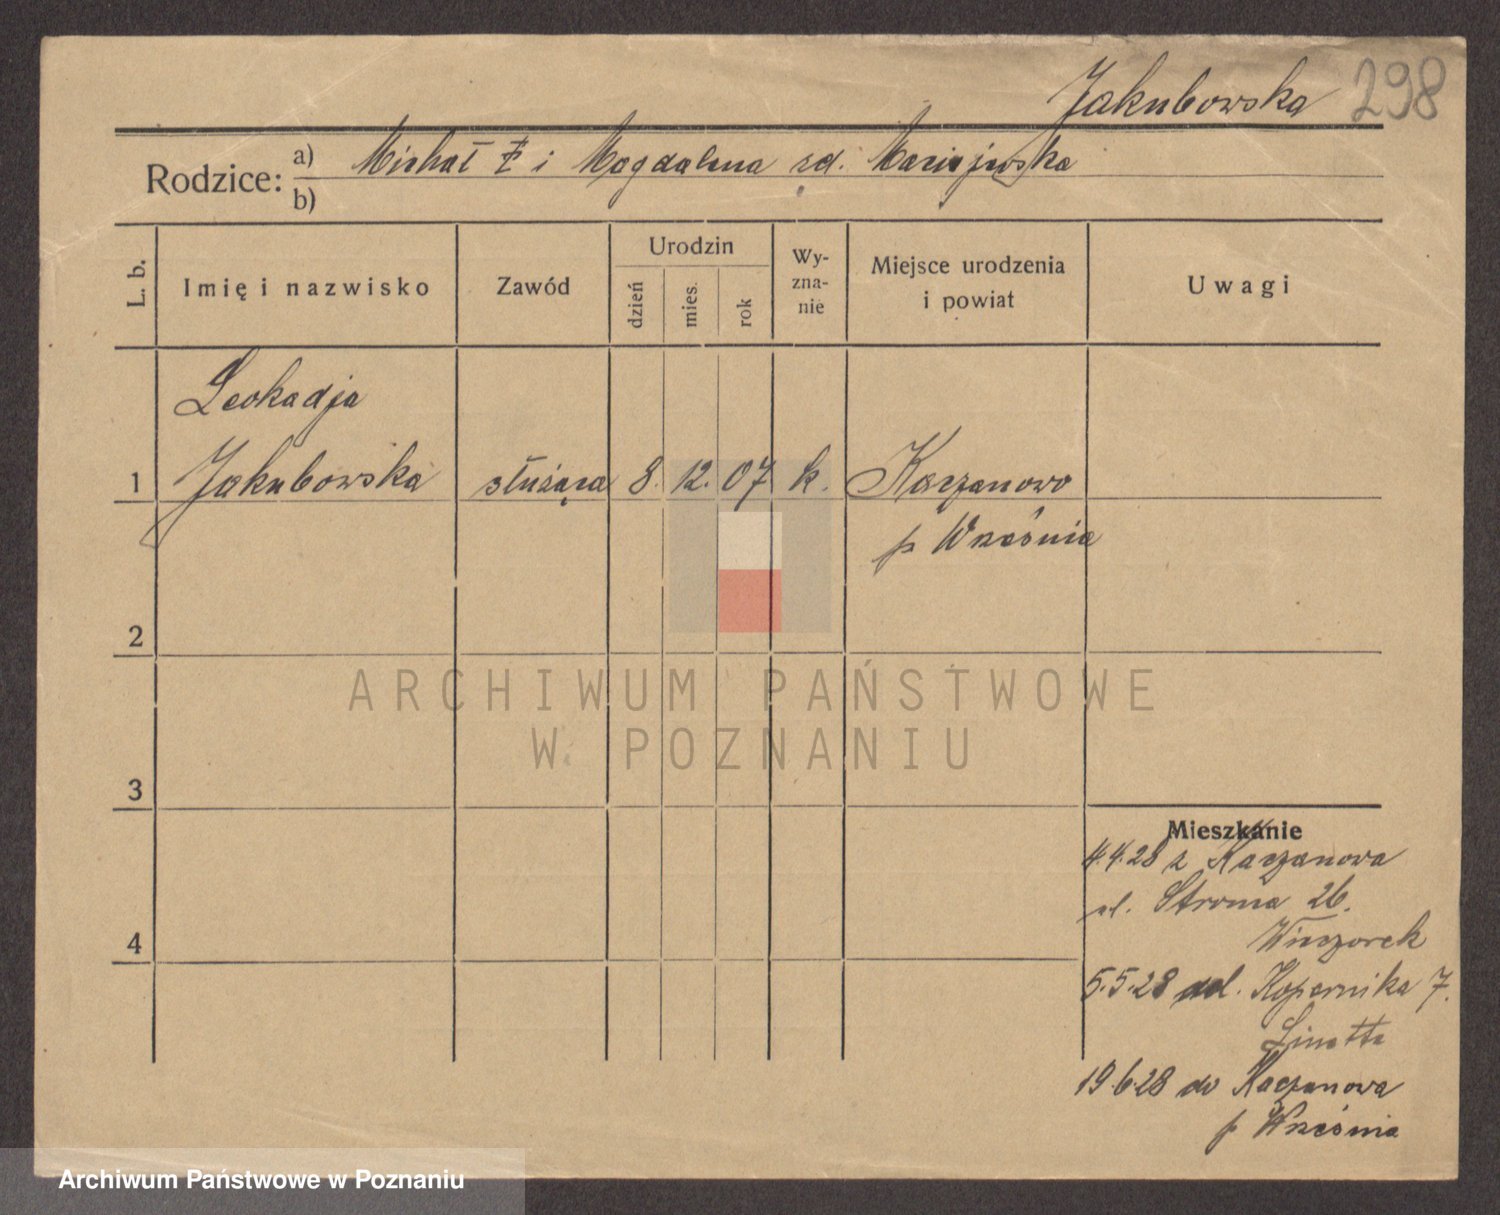 Jakubowska 298
Rodzice: a) Michał i Magdalena zd.
b)
L. b.
Imię i nazwisko
Zawód
Urodzin
dzień
mies.
rok
Wy-
zna-
nie
Miejsce urodzenia
i powiat
Uwagi
Leokadja
1 Jakubowska służąca 8. 12. 07 k. Kaczanowo
p Września
2
3
4
Mieszkanie
4.4.28 z Kaczanowa
ul. Stroma 26.
Wieczorek
5.5.28 ul. Kopernika 7.
Linette
19.6.28 do Kaczanowa
p Września
ARCHIWUM PAŃSTWOWE
W POZNANIU
Archiwum Państwowe w Poznaniu